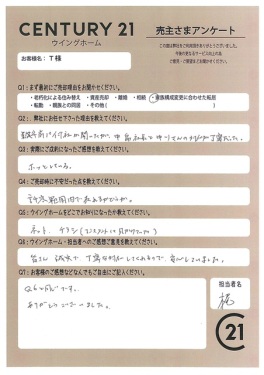 CENTURY 21
ウイングホーム
売主さまアンケート
この度は弊社をご利用頂きありがとうございました。
今後の更なるサービス向上の為
ご意見・ご感想をお聞かせください。
お客様名： T 様
Q1：まず最初にご売却理由をお聞かせください。
・老朽化による住み替え ・資産売却 ・離婚 ・相続 ・家族構成変更に合わせた転居
・転勤 ・親族との同居 ・その他( )
Q2：弊社にお任せ下さった理由を教えてください。
Q3：実際にご成約になったご感想を教えてください。
ホッとしている。
Q4：ご売却時に不安だった点を教えてください。
許容範囲内で売れるかどうか。
Q5：ウイングホームをどこでお知りになったか教えてください。
ネット、チラシ
Q6：ウイングホーム・担当者へのご感想ご意見を教えてください。
皆さん 誠実で、丁寧な対応してくれるので、安心していました。
Q7：お客様のご感想などなんでもご自由にご記入ください。
Q6と同じです。
ありがとうございました。
担当者名
C21